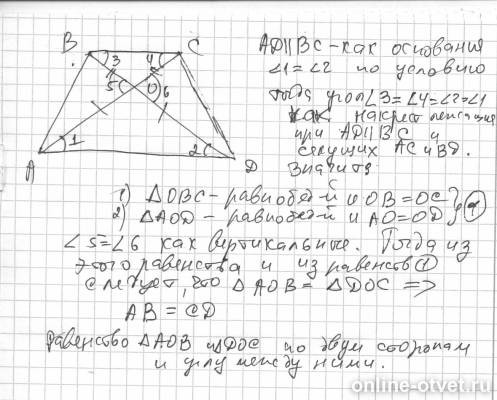 B
C
3
4
5
O
6
A
1
2
D
AD||BC - как основания
∠1=∠2 по условию
тогда угол ∠3=∠4=∠2=∠1
как накрест лежащие
при AD||BC и
секущих AC и BD.
Значит
1) △OBC - равнобед-й и OB=OC
2) △AOD - равнобед-й и AO=OD } 1
∠5=∠6 как вертикальные. Тогда из
этого равенства и из равенств 1
следует, что △AOB = △DOC =>
AB = CD
Равенство △AOB и △DOC по двум сторонам
и углу между ними.
online-otvet.ru